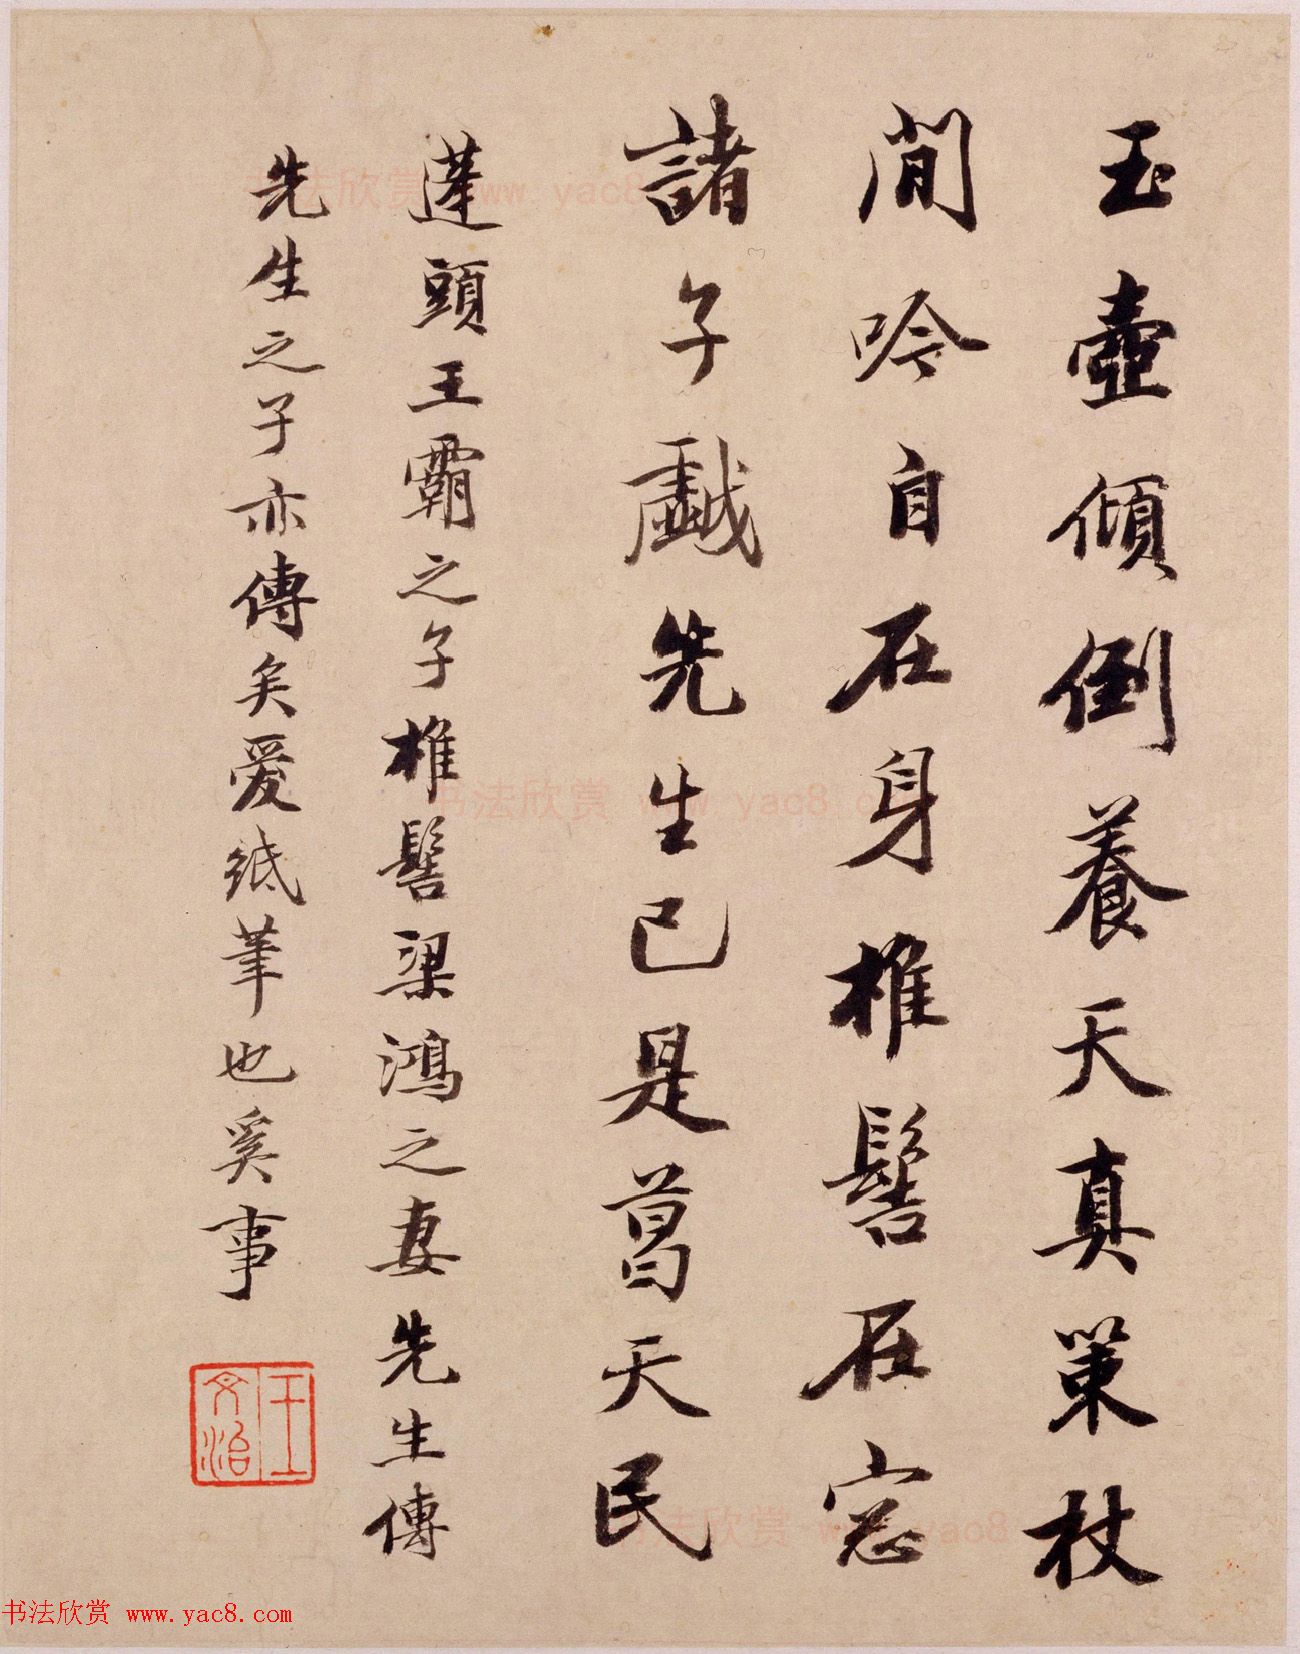 玉壺傾倒養天真策杖
閒吟自在身椎髻在窓
諸子戯先生已是葛天民
蓬頭王霸之子椎髻梁鴻之妻先生傳
先生之子亦傳矣愛紙筆也奚事
王文治
书法欣赏 www.yac8.com
书法欣赏 www.yac8.com
书法欣赏 www.yac8.com
书法欣赏 www.yac8.com